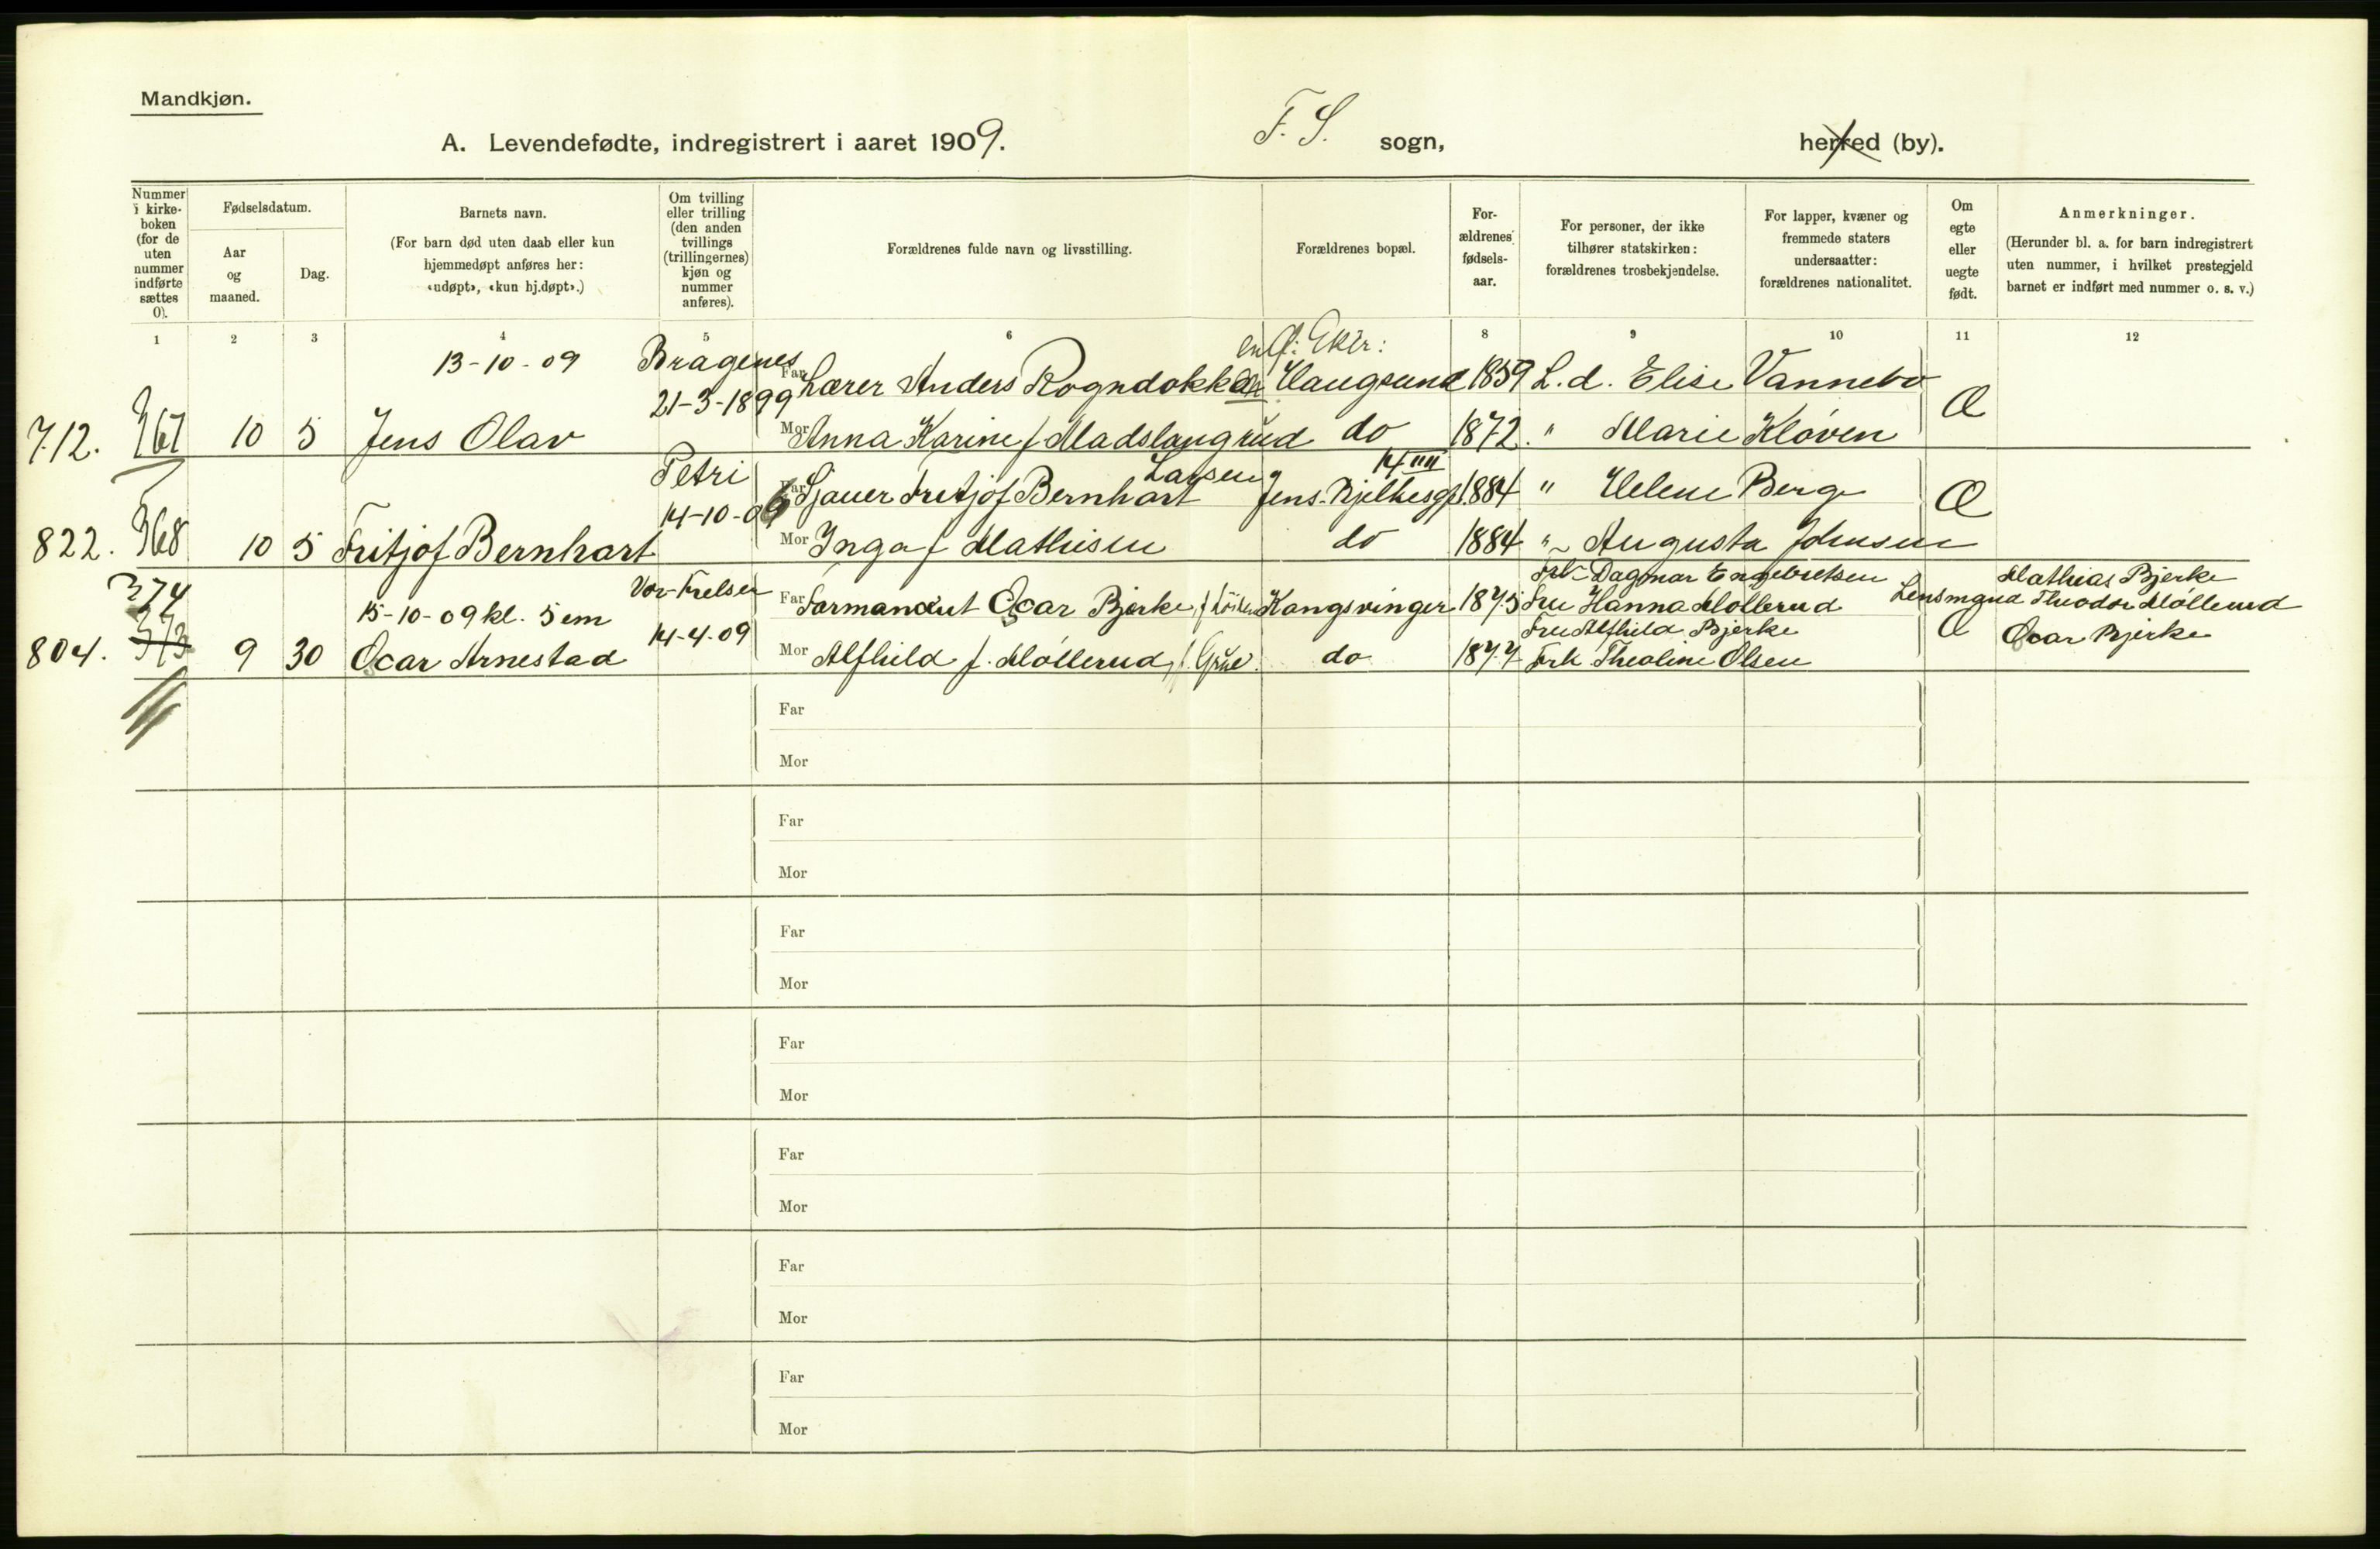 Mandkjøn.
A. Levendefødte, indregistrert i aaret 1909. F. S. sogn, herred (by).
Nummer i kirke-boken (for de uten nummer indførte sættes 0).
Fødselsdatum.
Aar og maaned.
Dag.
Barnets navn.
(For barn død uten daab eller kun hjemmedøpt anføres her: «udøpt», «kun hj.døpt».)
Om tvilling eller trilling (den anden tvillings (trillingernes) kjøn og nummer anføres).
Forældrenes fulde navn og livsstilling.
Forældrenes bopæl.
For-ældrenes fødsels-aar.
For personer, der ikke tilhører statskirken: forældrenes trosbekjendelse.
For lapper, kvæner og fremmede staters undersaatter: forældrenes nationalitet.
Om egte eller uegte født.
Anmerkninger.
(Herunder bl. a. for barn indregistrert uten nummer, i hvilket prestegjeld barnet er indført med nummer o. s. v.)
1 2 3 4 5 6 8 9 10 11 12
13-10-09 Bragenes Eker:
21-3-1899 Far Lærer Anders Rogndokken Haugsund 1859 L. d. Elise Vannebo
712. 367 10 5 Jens Olav Mor Anna Karine f Madslangrud do 1872. " Marie Kløven Æ
Petri Larsen 14 IIII
14-10-06 Far Sjauer Fritjof Bernhart Jens Bjelkesgt 1884 " Helene Berg Æ
822. 368 10 5 Fritjof Bernhart Mor Inga f Mathisen do 1884 " Augusta Johnsen
374 Vor Frelser Frk Dagmar Engebretsen Mathias Bjerke
373 15-10-09 kl. 5 em Far Garmanaut Oscar Bjerke, f Kongsvinger 1875 Fru Hanna Møllerud Lensmand Theodor Møllerud
14-4-09 Fru Alfhild Bjerke Oscar Bjerke
804. 9 30 Oscar Arnestad Mor Alfhild f. Møllerud, f. Grue do 1877 Frk Theoline Olsen
Far
Mor
Far
Mor
Far
Mor
Far
Mor
Far
Mor
Far
Mor
Far
Mor